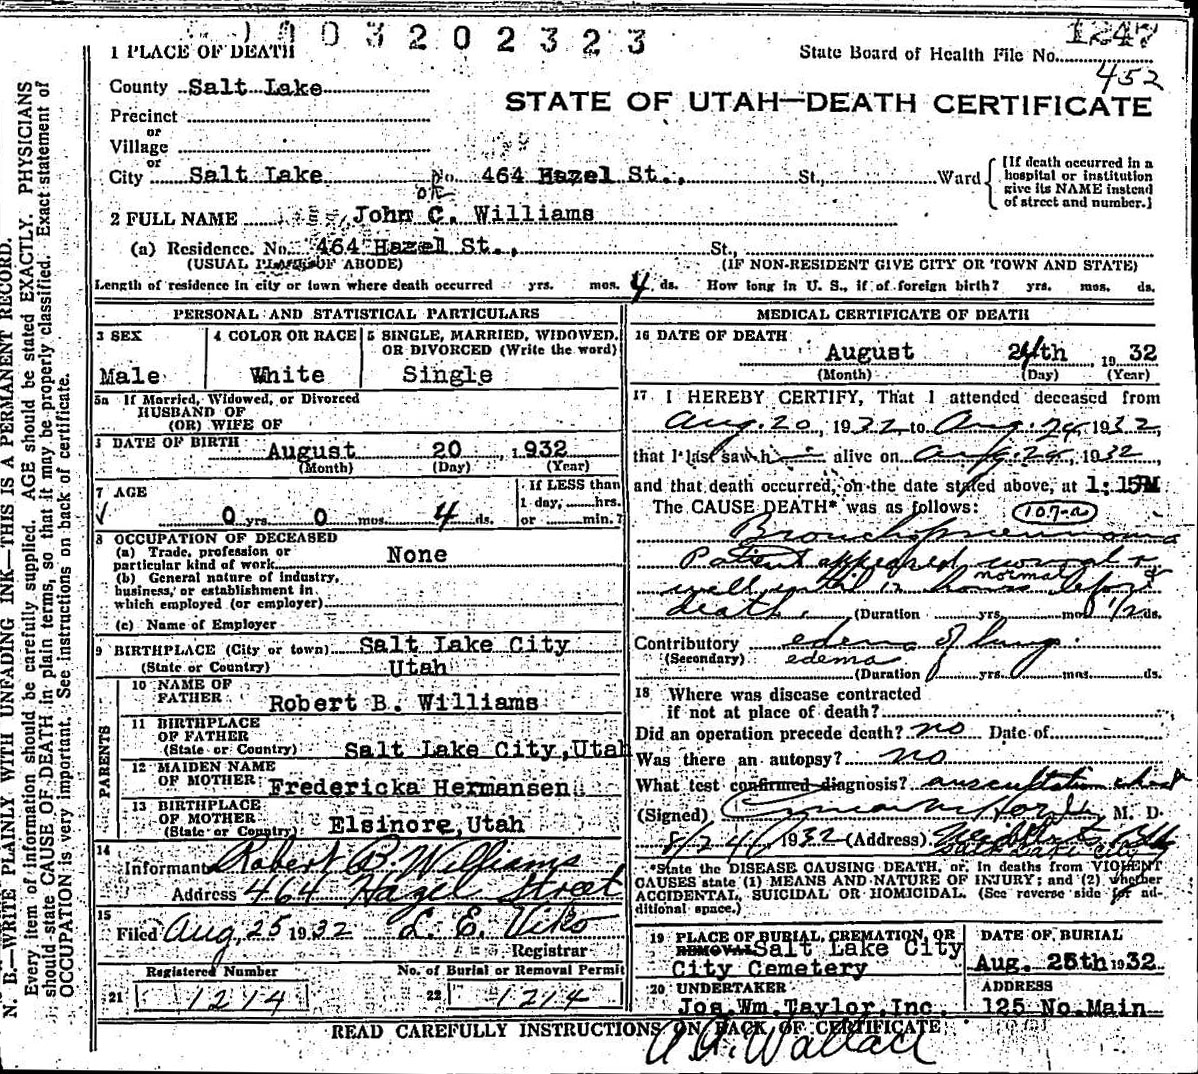 1003202323
1 PLACE OF DEATH
State Board of Health File No. 1247
452
County Salt Lake
STATE OF UTAH—DEATH CERTIFICATE
Precinct
or
Village
or
City Salt Lake No. 464 Hazel St., St., Ward {[If death occurred in a hospital or institution give its NAME instead of street and number.]
OK
2 FULL NAME John C. Williams
(a) Residence. No. 464 Hazel St., St.,
(USUAL PLACE OF ABODE) (IF NON-RESIDENT GIVE CITY OR TOWN AND STATE)
Length of residence in city or town where death occurred yrs. mos. 4 ds. How long in U. S., if of foreign birth? yrs. mos. ds.
PERSONAL AND STATISTICAL PARTICULARS
3 SEX 4 COLOR OR RACE 5 SINGLE, MARRIED, WIDOWED, OR DIVORCED (Write the word)
Male White Single
5a If Married, Widowed, or Divorced
HUSBAND OF
(OR) WIFE OF
6 DATE OF BIRTH August 20, 1932
(Month) (Day) (Year)
7 AGE If LESS than
1 day, hrs.
0 yrs. 0 mos. 4 ds. or min.?
8 OCCUPATION OF DECEASED
(a) Trade, profession or
particular kind of work None
(b) General nature of industry,
business, or establishment in
which employed (or employer)
(c) Name of Employer
9 BIRTHPLACE (City or town) Salt Lake City
(State or Country) Utah
PARENTS
10 NAME OF
FATHER Robert B. Williams
11 BIRTHPLACE
OF FATHER
(State or Country) Salt Lake City, Utah
12 MAIDEN NAME
OF MOTHER Fredericka Hermansen
13 BIRTHPLACE
OF MOTHER
(State or Country) Elsinore, Utah
14
Informant Robert B. Williams
Address 464 Hazel Street
15
Filed Aug. 25 1932 L. E. Viko
Registrar
Registered Number No. of Burial or Removal Permit
21 1214 22 1214
MEDICAL CERTIFICATE OF DEATH
16 DATE OF DEATH
August 24th 1932
(Month) (Day) (Year)
17 I HEREBY CERTIFY, That I attended deceased from
Aug. 20, 1932, to Aug. 24, 1932,
that I last saw h alive on Aug. 24, 1932
and that death occurred, on the date stated above, at 1:15PM
The CAUSE DEATH* was as follows: 107-a
Bronchopneumonia
Patient appeared normal &
normal
well until 12 hours before
death. (Duration yrs. mos. 1/2 ds.
Contributory edema of lung.
(Secondary) edema
(Duration yrs. mos. ds.
18 Where was disease contracted
if not at place of death?
Did an operation precede death? no Date of
Was there an autopsy? no
What test confirmed diagnosis? auscultation chest
(Signed) M. D.
8/24, 1932 (Address)
Salt Lake City
*State the DISEASE CAUSING DEATH, or, in deaths from VIOLENT
CAUSES state (1) MEANS AND NATURE OF INJURY; and (2) whether
ACCIDENTAL, SUICIDAL OR HOMICIDAL. (See reverse side for additional space.)
19 PLACE OF BURIAL, CREMATION, OR REMOVAL DATE OF BURIAL
Salt Lake City
City Cemetery Aug. 25th 1932
20 UNDERTAKER ADDRESS
Jos. Wm. Taylor, Inc. 125 No. Main
READ CAREFULLY INSTRUCTIONS ON BACK OF CERTIFICATE
A. A. Wallace
N. B.—WRITE PLAINLY WITH UNFADING INK—THIS IS A PERMANENT RECORD.
Every item of information should be carefully supplied. AGE should be stated EXACTLY. PHYSICIANS
should state CAUSE OF DEATH in plain terms, so that it may be properly classified. Exact statement of
OCCUPATION is very important. See instructions on back of certificate.